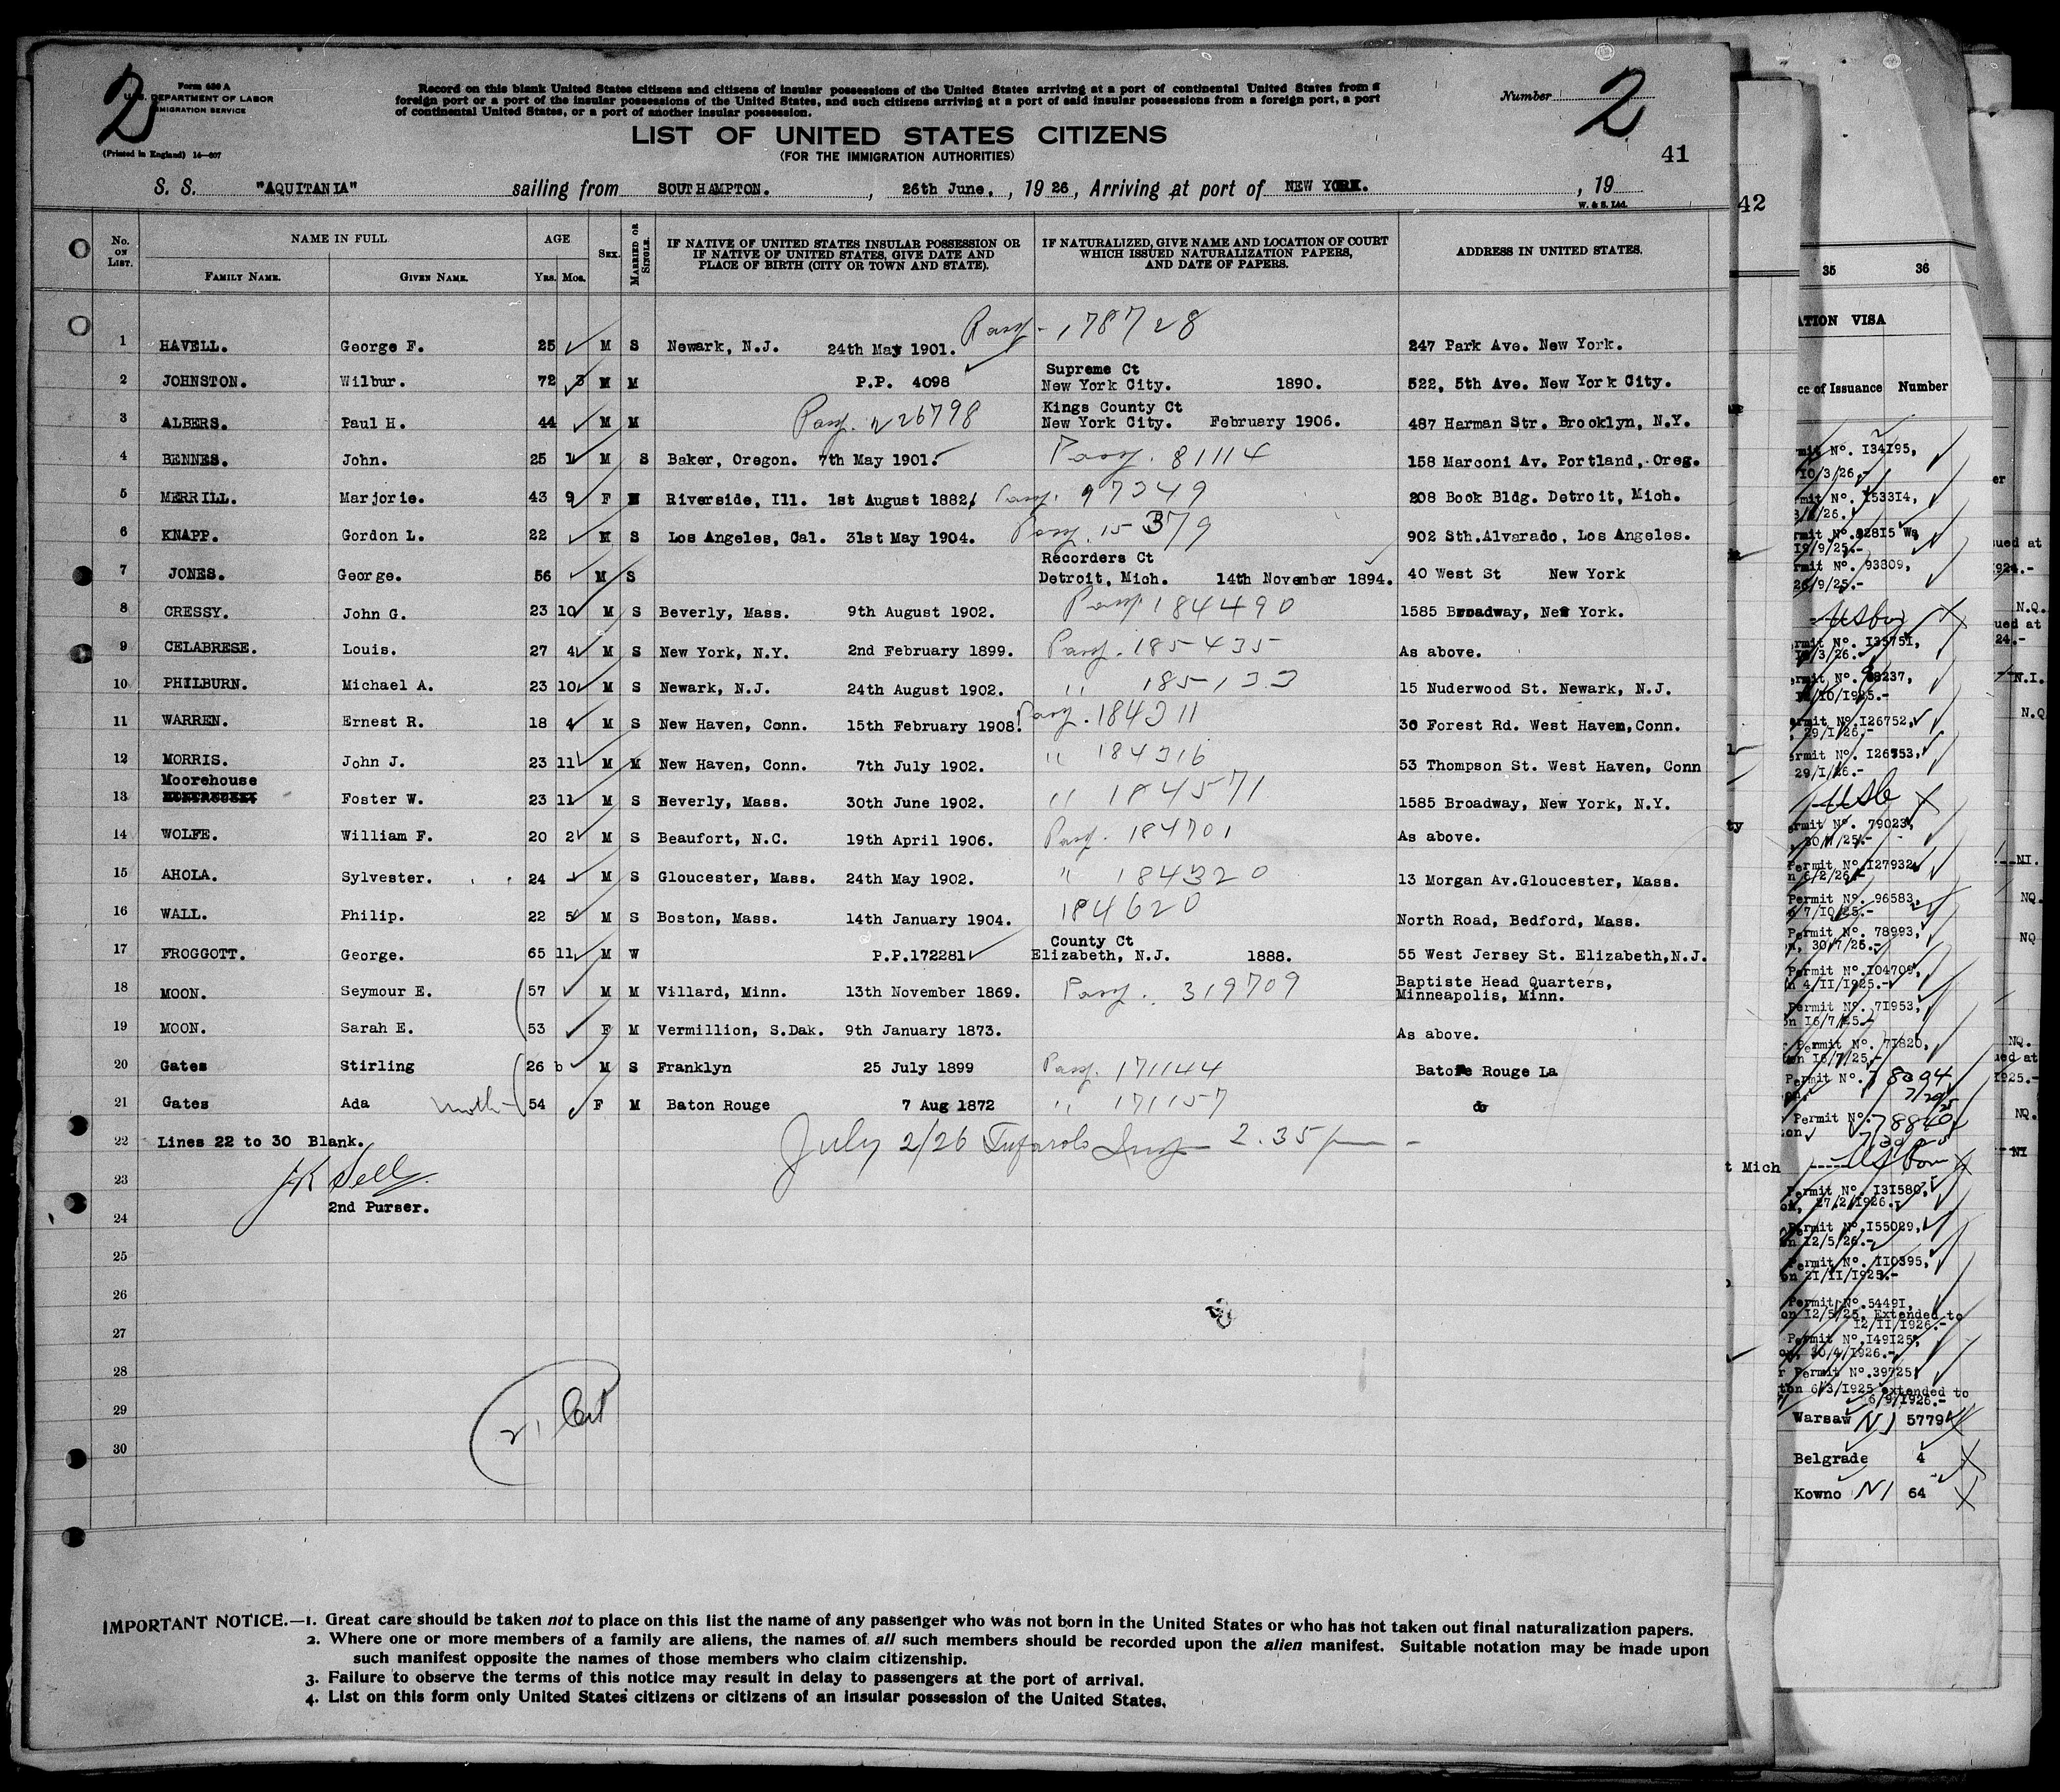 Form 630 A
U.S. DEPARTMENT OF LABOR
IMMIGRATION SERVICE
(Printed in England) 14—607
2
Record on this blank United States citizens and citizens of insular possessions of the United States arriving at a port of continental United States from a
foreign port or a port of the insular possessions of the United States, and such citizens arriving at a port of said insular possessions from a foreign port, a port
of continental United States, or a port of another insular possession.
Number 2
LIST OF UNITED STATES CITIZENS
(FOR THE IMMIGRATION AUTHORITIES)
41
S. S. "AQUITANIA" sailing from SOUTHAMPTON. , 26th June. , 19 26, Arriving at port of NEW YORK. , 19
W. & S. Ltd.
No. ON LIST. NAME IN FULL AGE SEX. MARRIED OR SINGLE. IF NATIVE OF UNITED STATES INSULAR POSSESSION OR IF NATIVE OF UNITED STATES, GIVE DATE AND PLACE OF BIRTH (CITY OR TOWN AND STATE). IF NATURALIZED, GIVE NAME AND LOCATION OF COURT WHICH ISSUED NATURALIZATION PAPERS, AND DATE OF PAPERS. ADDRESS IN UNITED STATES.
FAMILY NAME. GIVEN NAME. Yrs. Mos.
1 HAVELL. George F. 25 M S Newark, N.J. 24th May 1901. Pass. 178728 247 Park Ave. New York.
2 JOHNSTON. Wilbur. 72 3 M M P.P. 4098 Supreme Ct New York City. 1890. 522, 5th Ave. New York City.
3 ALBERS. Paul H. 44 M M Pass. 226798 Kings County Ct New York City. February 1906. 487 Harman Str. Brooklyn, N.Y.
4 BENNES. John. 25 1 M S Baker, Oregon. 7th May 1901. Pass. 81114 158 Marconi Av. Portland, Oreg.
5 MERRILL. Marjorie. 43 9 F M Riverside, Ill. 1st August 1882. Pass. 97349 208 Book Bldg. Detroit, Mich.
6 KNAPP. Gordon L. 22 M S Los Angeles, Cal. 31st May 1904. Pass. 15379 902 Sth.Alvarado, Los Angeles.
7 JONES. George. 56 M S Recorders Ct Detroit, Mich. 14th November 1894. 40 West St New York
8 CRESSY. John G. 23 10 M S Beverly, Mass. 9th August 1902. Pass. 184490 1585 Broadway, New York.
9 CELABRESE. Louis. 27 4 M S New York, N.Y. 2nd February 1899. Pass. 185435 As above.
10 PHILBURN. Michael A. 23 10 M S Newark, N.J. 24th August 1902. " 185133 15 Nuderwood St. Newark, N.J.
11 WARREN. Ernest R. 18 4 M S New Haven, Conn. 15th February 1908. Pass. 184311 36 Forest Rd. West Haven,Conn.
12 MORRIS. John J. 23 11 M M New Haven, Conn. 7th July 1902. " 184316 53 Thompson St. West Haven, Conn
13 Moorehouse Foster W. 23 11 M S Beverly, Mass. 30th June 1902. " 184571 1585 Broadway, New York, N.Y.
14 WOLFE. William F. 20 2 M S Beaufort, N.C. 19th April 1906. Pass. 184701 As above.
15 AHOLA. Sylvester. 24 M S Gloucester, Mass. 24th May 1902. " 184320 13 Morgan Av.Gloucester, Mass.
16 WALL. Philip. 22 5 M S Boston, Mass. 14th January 1904. 184620 North Road, Bedford, Mass.
17 FROGGOTT. George. 65 11 M W P.P.172281 County Ct Elizabeth, N.J. 1888. 55 West Jersey St. Elizabeth,N.J.
18 MOON. Seymour E. 57 M M Villard, Minn. 13th November 1869. Pass. 319709 Baptiste Head Quarters, Minneapolis, Minn.
19 MOON. Sarah E. 53 F M Vermillion, S.Dak. 9th January 1873. As above.
20 Gates Stirling 26 M S Franklyn 25 July 1899 Pass. 171144 Batone Rouge La
21 Gates Ada Moth 54 F M Baton Rouge 7 Aug 1872 " 171157 do
22 Lines 22 to 30 Blank. July 2/26 2.35 pm
23
2nd Purser.
24
25
26
27
28
29
30
IMPORTANT NOTICE.—1. Great care should be taken not to place on this list the name of any passenger who was not born in the United States or who has not taken out final naturalization papers.
2. Where one or more members of a family are aliens, the names of all such members should be recorded upon the alien manifest. Suitable notation may be made upon
such manifest opposite the names of those members who claim citizenship.
3. Failure to observe the terms of this notice may result in delay to passengers at the port of arrival.
4. List on this form only United States citizens or citizens of an insular possession of the United States.
42
35 36
ATION VISA
ce of Issuance Number
mit No. 134195,
10/3/26.-
mit No. 153314,
19/9/25.-
mit No. 93809,
26/9/25.-
rmit No. 135751,
ermit No.126752,
29/1/26.-
ermit No. 126753,
29/1/26.-
ermit No. 79023,
30/7/25.-
Permit No.127932,
n 6/2/26.-
Permit No. 96583,
7/10/25.-
Permit No. 78993,
n, 30/7/25.-
Permit No.104709,
n 4/11/1925.-
Permit No. 71953,
on 16/7/25.-
Permit No. 71820,
ton 16/7/25.-
Permit No. 78094
Permit No. 78840
t Mich
Permit No. 131580,
on, 27/2/1926.
Permit No.155029,
on 12/5/26.-
Permit No. 110395,
on 21/11/1925.-
Permit No.54491,
on 12/5/25, Extended to
12/11/1926.-
Permit No.149125,
on, 30/4/1926.-
r Permit No.39725,
ton 6/3/1925 extended to
6/9/1926.-
Warsaw NI 5779
Belgrade 4
Kowno NI 64